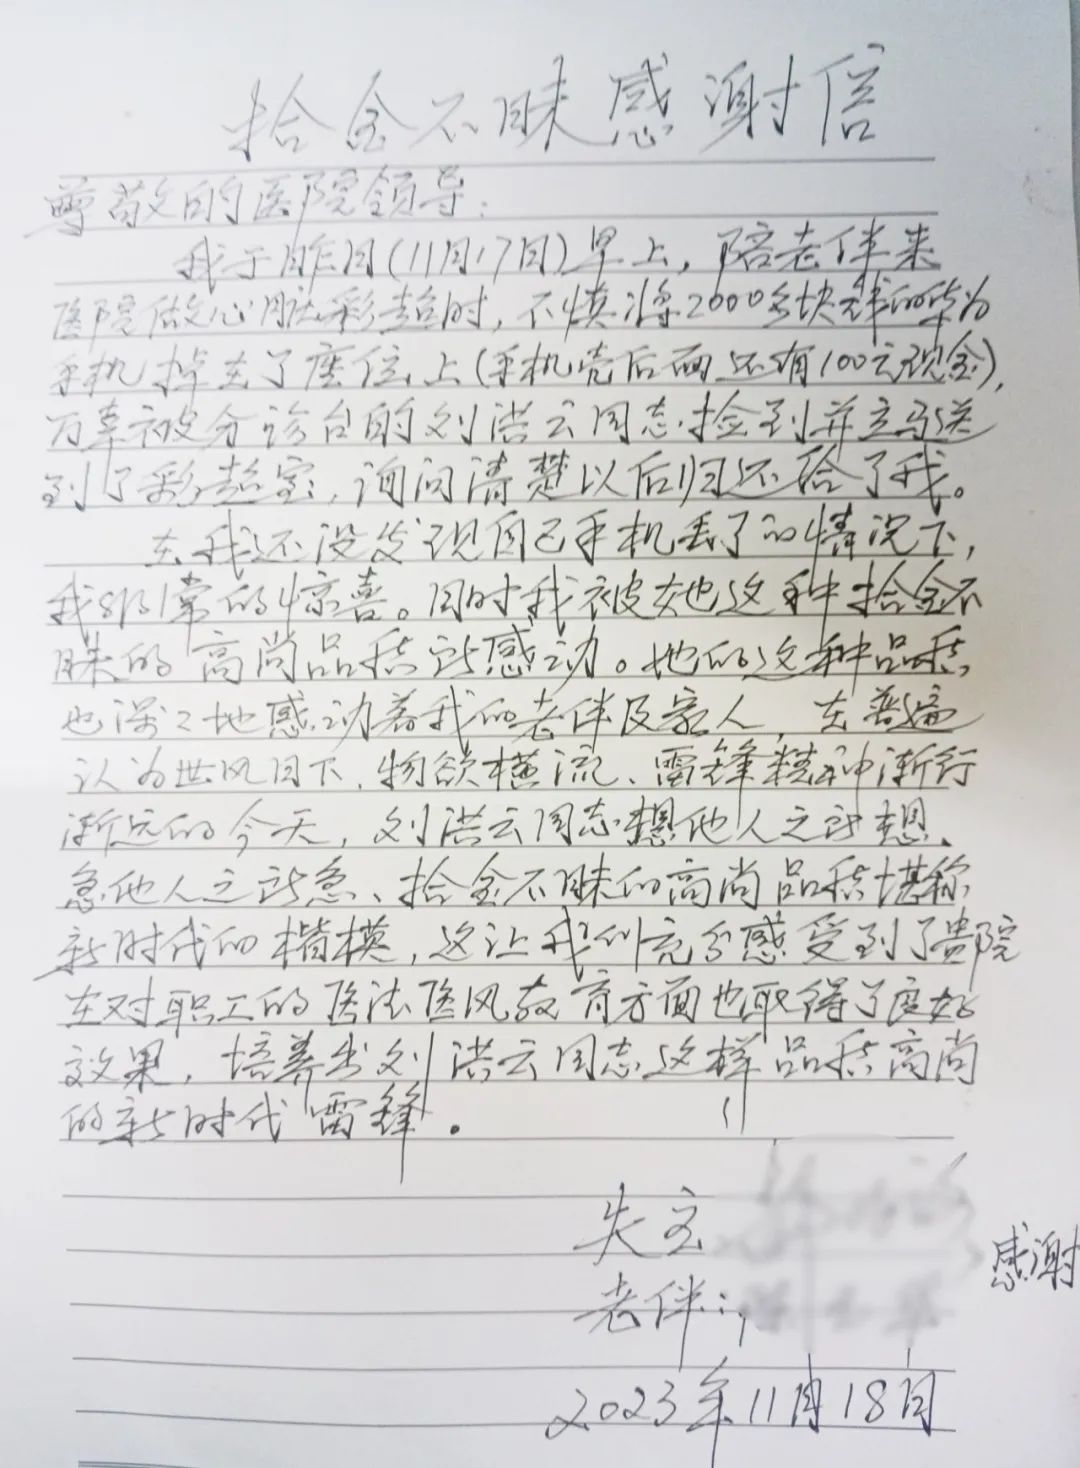 拾金不昧感谢信
尊敬的医院领导：
我于昨日(11月17日)早上，陪老伴来
医院做心脏彩超时，不慎将2000多块钱的华为
手机掉在了座位上(手机壳后面还有100元现金)，
万幸被分诊台的刘洪云同志捡到并立马送
到了彩超室，询问清楚以后归还给了我。
在我还没发现自己手机丢了的情况下，
我非常的惊喜。同时我被她这种拾金不
昧的高尚品质所感动。她的这种品质
也深深地感动着我的老伴及家人，在普遍
认为世风日下、物欲横流、雷锋精神渐行
渐远的今天，刘洪云同志想他人之所想、
急他人之所急、拾金不昧的高尚品质堪称
新时代的楷模，这让我们充分感受到了贵院
在对职工的医法医风教育方面也取得了良好
效果，培养出刘洪云同志这样品质高尚
的新时代雷锋。
失主
感谢
老伴：
2023年11月18日